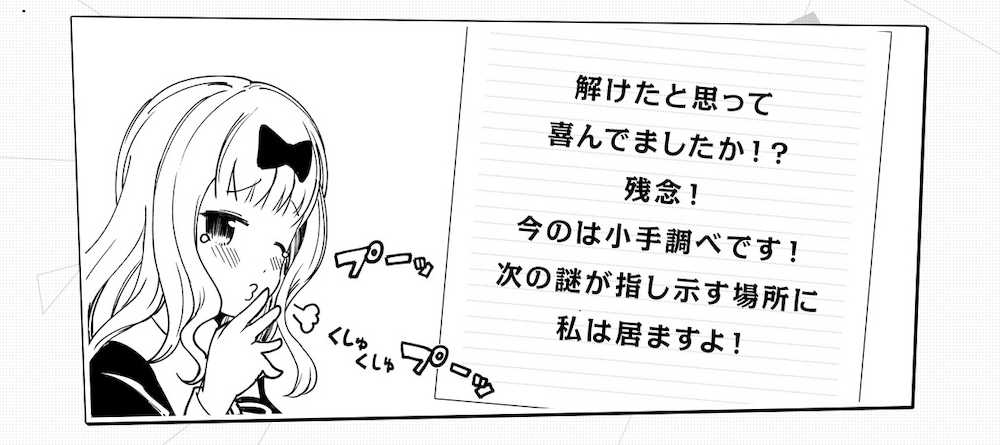 解けたと思って
喜んでましたか!?
残念!
今のは小手調べです!
次の謎が指し示す場所に
私は居ますよ!
プーッ
くしゅ
くしゅ
プーッ